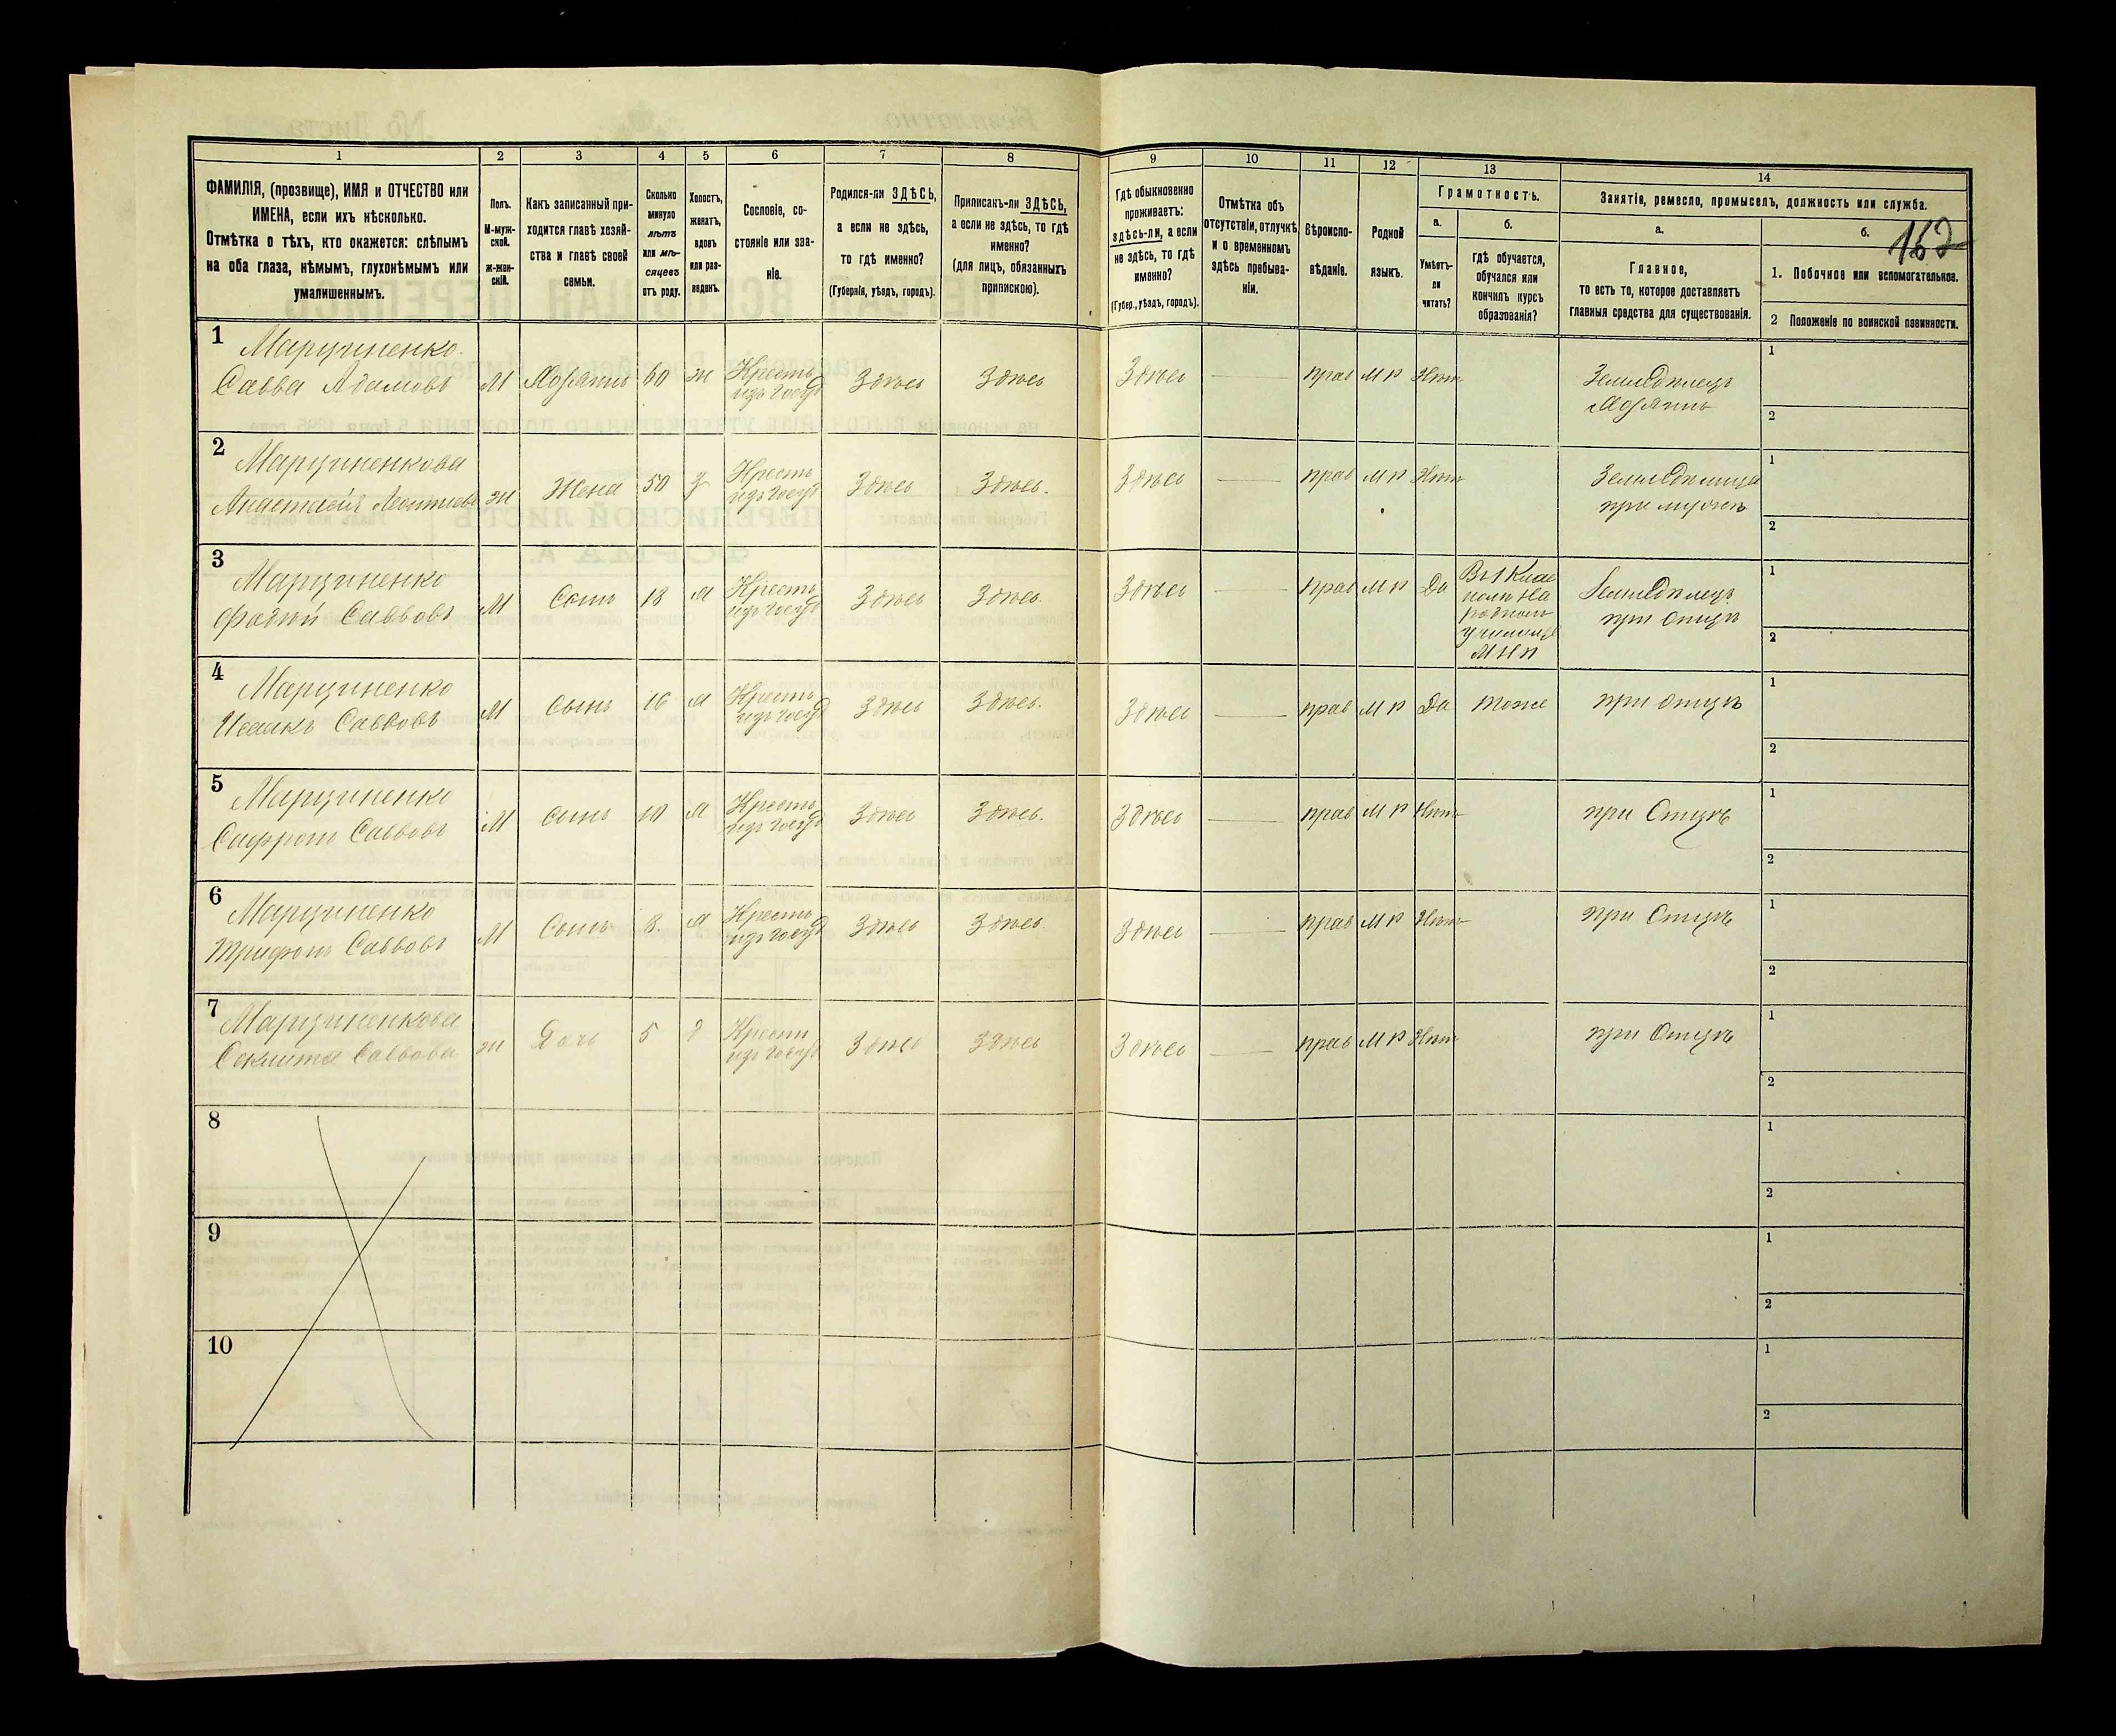 1 2 3 4 5 6 7 8 9 10 11 12 13 14
ФАМИЛІЯ, (прозвище), ИМЯ и ОТЧЕСТВО или
ИМЕНА, если ихъ нѣсколько.
Отмѣтка о тѣхъ, кто окажется: слѣпымъ
на оба глаза, нѣмымъ, глухонѣмымъ или
умалишеннымъ.
Полъ.
М-муж-
ской.
ж-жен-
скій.
Какъ записанный при-
ходится главѣ хозяй-
ства и главѣ своей
семьи.
Сколько
минуло
лѣтъ
или мѣ-
сяцевъ
отъ роду.
Холостъ,
женатъ,
вдовъ
или раз-
веденъ.
Сословіе, со-
стояніе или зва-
ніе.
Родился-ли ЗДѢСЬ,
а если не здѣсь,
то гдѣ именно?
(Губернія, уѣздъ, городъ).
Приписанъ-ли ЗДѢСЬ,
а если не здѣсь, то гдѣ
именно?
(для лицъ, обязанныхъ
припискою).
Гдѣ обыкновенно
проживаетъ:
здѣсь-ли, а если
не здѣсь, то гдѣ
именно?
(Губер., уѣздъ, городъ).
Отмѣтка объ
отсутствіи, отлучкѣ
и о временномъ
здѣсь пребыва-
ніи.
Вѣроиспо-
вѣданіе.
Родной
языкъ.
Грамотность.
а.
Умѣетъ-
ли
читать?
б.
гдѣ обучается,
обучался или
кончилъ курсъ
образованія?
Занятіе, ремесло, промыселъ, должность или служба.
а.
Главное,
то есть то, которое доставляетъ
главныя средства для существованія.
б.
162
1. Побочное или вспомогательное.
2 Положеніе по воинской повинности.
1 Марциненко
Савва Адамовъ М Хозяинъ 60 ж Кресть изъ госуд Здѣсь Здѣсь Здѣсь — прав М Р Нѣтъ Земледѣлецъ Хозяинъ 1 2
2 Марциненкова
Анастасія ж Жена 50 з Крестъ изъ госуд Здѣсь Здѣсь. Здѣсь — прав М Р Нѣтъ при мужѣ 1 2
3 Марциненко
Фадѣй Саввовъ М Сынъ 18 х Крестъ изъ госуд Здѣсь Здѣсь. Здѣсь — прав М Р Да Въ 1 Клас на родномъ М Н П Земледѣлецъ при отцѣ 1 2
4 Марциненко
Исаакъ Саввовъ М Сынъ 16 х Крестъ изъ госуд Здѣсь Здѣсь. Здѣсь — прав М Р Да тоже при отцѣ 1 2
5 Марциненко
Сафронъ Саввовъ М Сынъ 10 х Крестъ изъ госуд Здѣсь Здѣсь. Здѣсь — прав М Р Нѣтъ при Отцѣ 1 2
6 Марциненко
Трифонъ Саввовъ М Сынъ 8. х Крестъ изъ госуд Здѣсь Здѣсь Здѣсь — прав М Р Нѣтъ при Отцѣ 1 2
7 Марциненкова
Саввова ж Дочь 5 д Крести изъ госуд Здѣсь Здѣсь Здѣсь — прав М Р Нѣтъ при Отцѣ 1 2
8 1 2
9 1 2
10 1 2